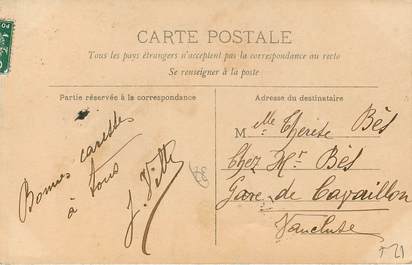 CARTE POSTALE
Tous les pays étrangers n'acceptent pas la correspondance au recto
Se renseigner à la poste
Partie réservée à la correspondance
Bonnes caresses
à tous
Adresse du destinataire
Mlle Thérèse Bès
Chez Mr Bès
Gare de Cavaillon
Vaucluse